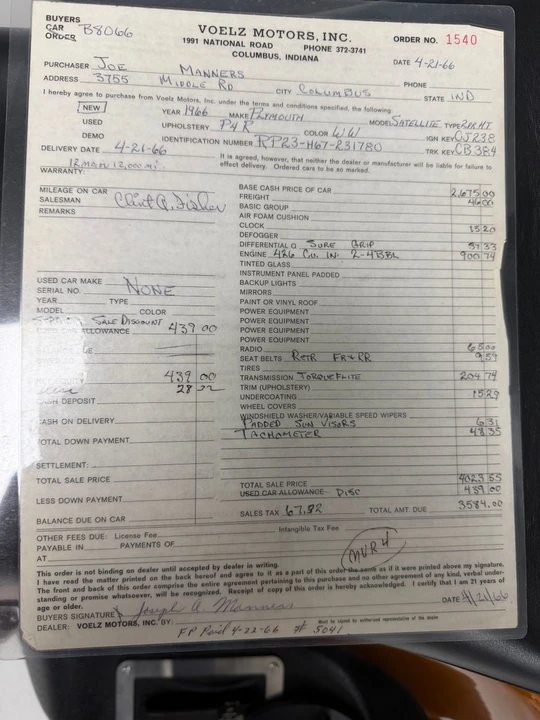 BUYERS
CAR B8066
ORDER
VOELZ MOTORS, INC.
1991 NATIONAL ROAD PHONE 372-3741
COLUMBUS, INDIANA
ORDER NO. 1540
DATE 4-21-66
PURCHASER JOE MANNERS
ADDRESS 3755 MIDDLE RD CITY COLUMBUS PHONE
STATE IND
I hereby agree to purchase from Voelz Motors, Inc. under the terms and conditions specified, the following:
NEW YEAR 1966 MAKE PLYMOUTH MODEL SATELLITE TYPE 2DR.HT
USED UPHOLSTERY P4R COLOR WW1 IGN KEY CJ238
DEMO IDENTIFICATION NUMBER RP23-H67-231780 TRK KEY CB384
DELIVERY DATE 4-21-66
It is agreed, however, that neither the dealer or manufacturer will be liable for failure to
effect delivery. Ordered cars to be so marked.
12 mon 12,000 mi.
WARRANTY:
MILEAGE ON CAR
SALESMAN
REMARKS
USED CAR MAKE NONE
SERIAL NO.
YEAR TYPE
MODEL COLOR
SALE DISCOUNT
ALLOWANCE 439 00
439 00
28 22
DEPOSIT
CASH ON DELIVERY
TOTAL DOWN PAYMENT
SETTLEMENT:
TOTAL SALE PRICE
LESS DOWN PAYMENT
BALANCE DUE ON CAR
BASE CASH PRICE OF CAR 2,675 00
FREIGHT 46 00
BASIC GROUP
AIR FOAM CUSHION
CLOCK 15 20
DEFOGGER
DIFFERENTIAL SURE GRIP 37 33
ENGINE 426 CU. IN. 2-4BBL 900 74
TINTED GLASS
INSTRUMENT PANEL PADDED
BACKUP LIGHTS
MIRRORS
PAINT OR VINYL ROOF
POWER EQUIPMENT
POWER EQUIPMENT
POWER EQUIPMENT
POWER EQUIPMENT
RADIO 65 00
SEAT BELTS RETR FR & RR 9 59
TIRES
TRANSMISSION TORQUEFLITE 204 79
TRIM (UPHOLSTERY)
UNDERCOATING 15 29
WHEEL COVERS
WINDSHIELD WASHER/VARIABLE SPEED WIPERS
PADDED SUN VISORS 6 31
TACHOMETER 48 35
TOTAL SALE PRICE 4023 55
USED CAR ALLOWANCE DISC 439 00
SALES TAX 67.82 TOTAL AMT. DUE 3584.00
OTHER FEES DUE: License Fee Intangible Tax Fee
PAYABLE IN PAYMENTS OF
AT
MVR4
This order is not binding on dealer until accepted by dealer in writing.
I have read the matter printed on the back hereof and agree to it as a part of this order the same as if it were printed above my signature.
The front and back of this order comprise the entire agreement pertaining to this purchase and no other agreement of any kind, verbal understanding or promise whatsoever, will be recognized. Receipt of copy of this order is hereby acknowledged. I certify that I am 21 years of
age or older.
BUYERS SIGNATURE Joseph A. Manners DATE 4/21/66
DEALER: VOELZ MOTORS, INC. BY:
Must be signed by authorized representative of the dealer
FP Paid 4-22-66 # 5041